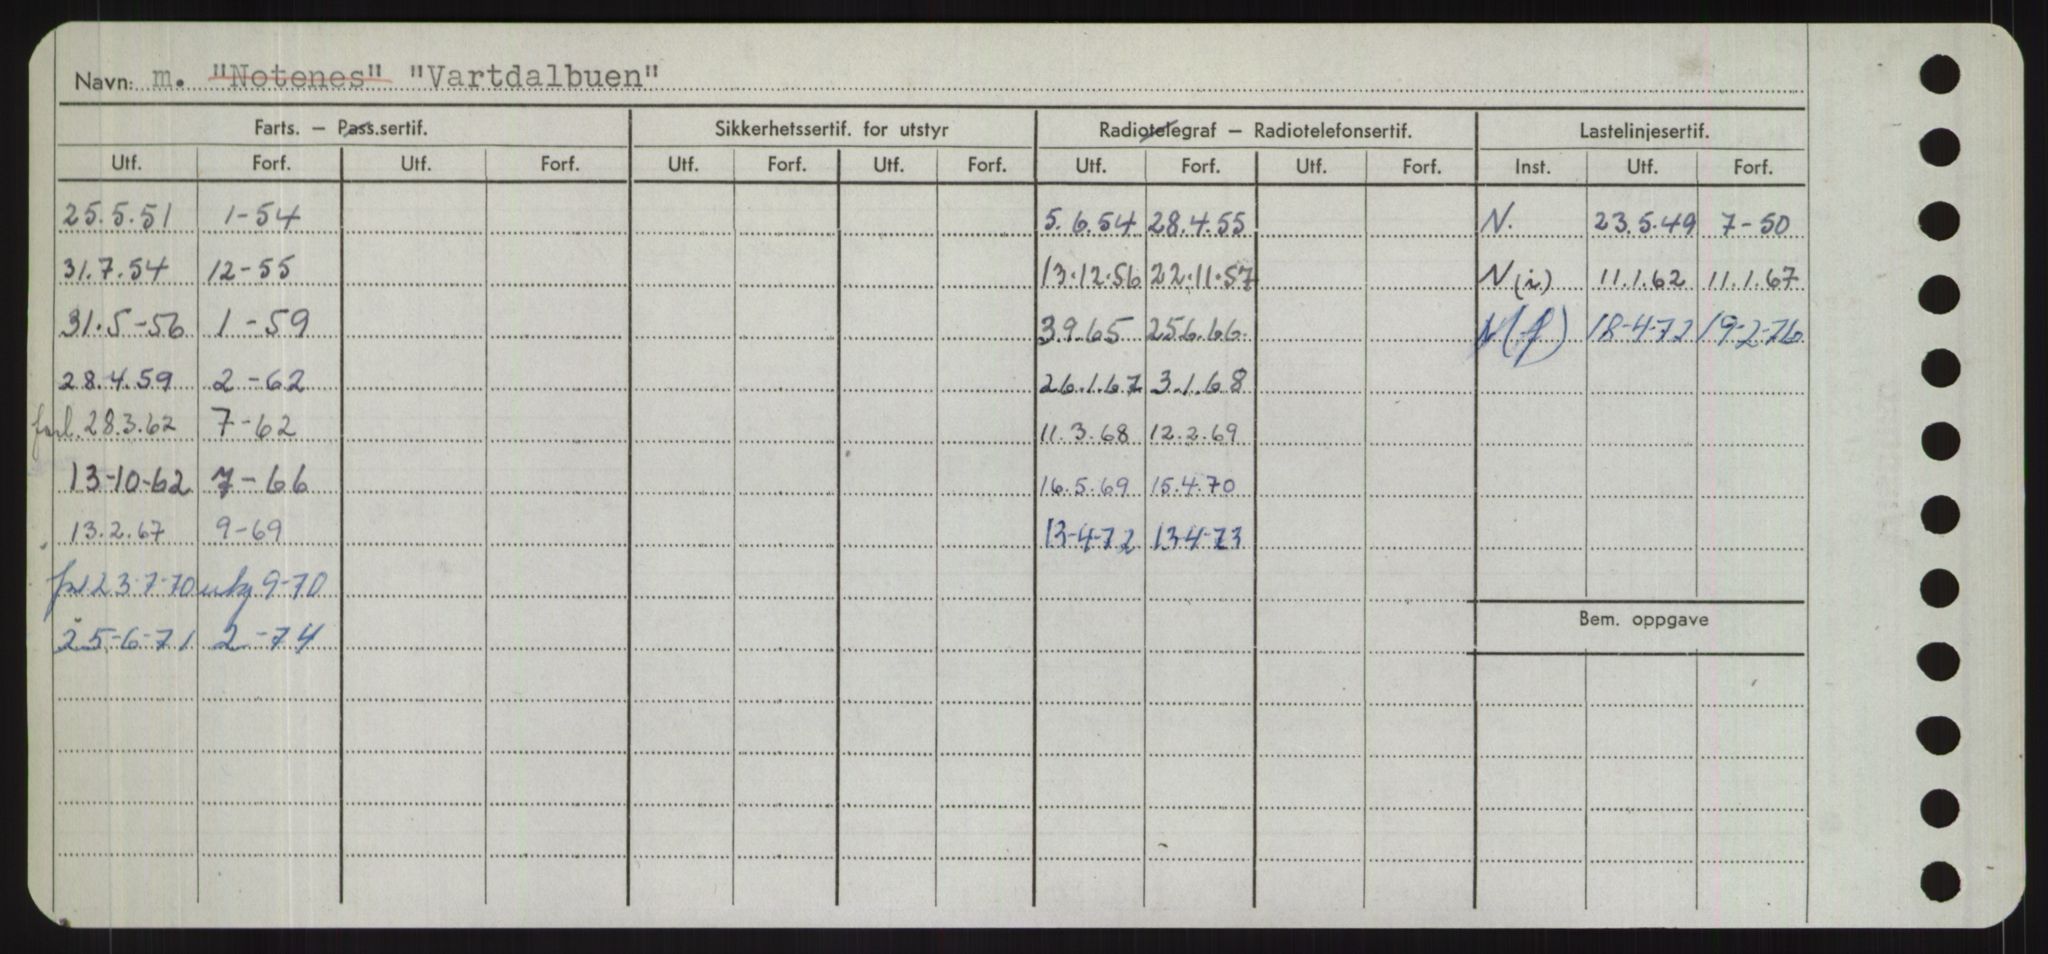 Navn: m. "Notenes" "Vartdalbuen"
Farts. – Pass.sertif. Sikkerhetssertif. for utstyr Radiotelegraf – Radiotelefonsertif. Lastelinjesertif.
Utf. Forf. Utf. Forf. Utf. Forf. Utf. Forf. Utf. Forf. Utf. Forf. Inst. Utf. Forf.
25.5.51 1-54 5.6.54 28.4.55 N. 23.5.49 7-50
31.7.54 12-55 13.12.56 22.11.57 N(i) 11.1.62 11.1.67
31.5-56 1-59 3.9.65 25.6.66 N(f) 18-4-72 19-2-76
28.4.59 2-62 26.1.67 3.1.68
forl. 28.3.62 7-62 11.3.68 12.2.69
13-10-62 7-66 16.5.69 15.4.70
13.2.67 9-69 13-4-72 13-4-73
23-7-70 9-70
25-6-71 2-74
Bem. oppgave